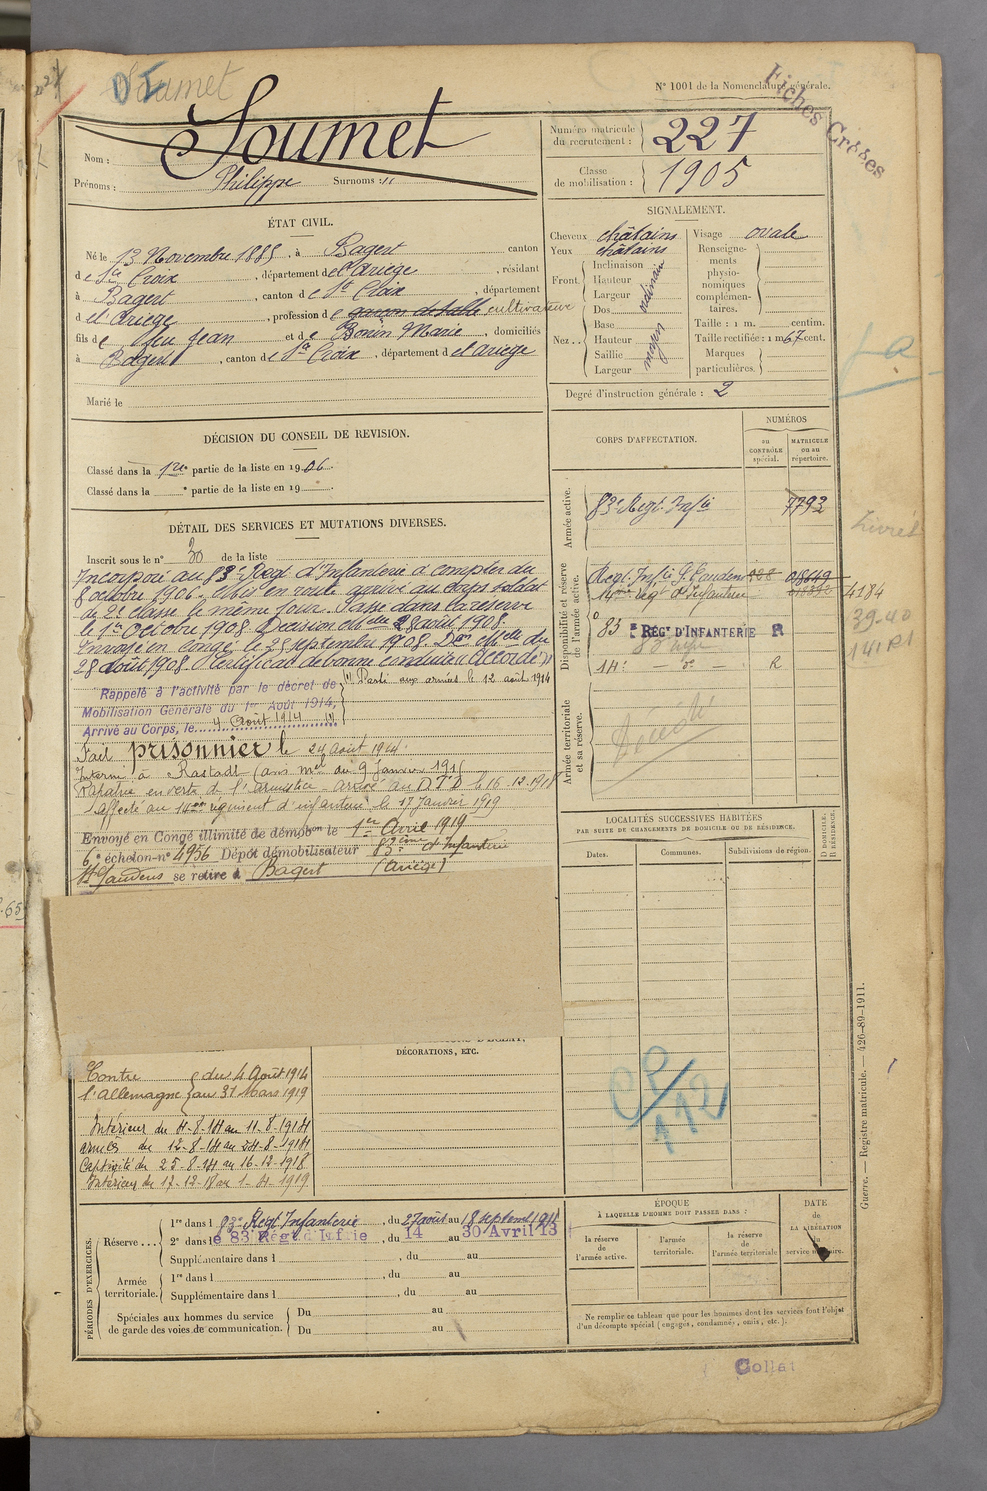 Soumet
N° 1001 de la Nomenclature générale.
Fiches Créées
Nom : Soumet
Prénoms : Philippe Surnoms : "
Numéro matricule du recrutement : 227
Classe de mobilisation : 1905
ÉTAT CIVIL.
Né le 13 Novembre 1885, à Bagert canton
de Ste Croix, département de l'Ariège, résidant
à Bagert, canton de Ste Croix, département
de l'Ariège, profession de garçon de salle cultivateur
fils de feu Jean et de Bonin Marie, domiciliés
à Bagert, canton de Ste Croix, département de l'Ariège
Marié le
SIGNALEMENT.
Cheveux châtains
Yeux châtains
Front Inclinaison
Hauteur
Largeur
ordinaire
Nez .. Dos
Base
Hauteur
Saillie
Largeur
moyen
Visage ovale
Renseignements physionomiques complémentaires.
Taille : 1 m. centim.
Taille rectifiée : 1 m 67 cent.
Marques particulières.
Degré d'instruction générale : 2
DÉCISION DU CONSEIL DE REVISION.
Classé dans la 1re partie de la liste en 1906.
Classé dans la e partie de la liste en 19 .
DÉTAIL DES SERVICES ET MUTATIONS DIVERSES.
Inscrit sous le n° 30 de la liste
Incorporé au 83e Regt d'Infanterie à compter du
8 octobre 1906. Mis en route arrivé au corps soldat
de 2e classe le même jour. Passé dans la réserve
le 1er Octobre 1908. Décision elle 28 août 1908.
Envoyé en congé le 25 septembre 1908. Don elle du
28 août 1908. Certificat de bonne conduite Accordé
Rappelé à l'activité par le décret de
Mobilisation Générale du 1er Août 1914,
Arrivé au Corps, le 4 Août 1914 (1)
(1) Parti aux armées le 12 août 1914
Fait prisonnier le 24 août 1914.
Interné à Rastadt (avis mel du 9 Janvier 1915
Rapatrié en vertu de l'armistice arrivé au D.T.D le 16.12.1918
affecté au 14eme régiment d'infanterie le 17 Janvier 1919
Envoyé en Congé illimité de démobon le 1er Avril 1919
6e échelon-n° 4956 Dépôt démobilisateur 83ème d'Infanterie
St Gaudens se retire à Bagert (Ariège)
CORPS D'AFFECTATION.
NUMÉROS
au CONTRÔLE spécial.
MATRICULE ou au répertoire.
Armée active.
83e Regt Infie 7793
Disponibilité et réserve de l'armée active.
Regt Infie St Gaudens 228 018649
14eme Régt d'Infanterie 4184
83 E RÉGT D'INFANTERIE R
14e — do — R
Livret
39-40
Armée territoriale et sa réserve.
LOCALITÉS SUCCESSIVES HABITÉES
PAR SUITE DE CHANGEMENTS DE DOMICILE OU DE RÉSIDENCE.
Dates.
Communes.
Subdivisions de région.
D DOMICILE. R RÉSIDENCE.
DÉCORATIONS, ETC.
Contre l'allemagne du 4 Août 1914
au 31 Mars 1919
Intérieur du 4-8-14 au 11-8-1914
armées du 12-8-14 au 24-8-1914
Captivité du 25-8-14 au 16-12-1918
Intérieur du 17-12-18 au 1-4-1919
CP/112
PÉRIODES D'EXERCICES.
Réserve ... 1re dans l 83e Regt Infanterie, du 27 août au 18 septemb 1911
2e dans le 83 Régt d'Infrie, du 14 au 30 Avril 13
Supplémentaire dans l , du au
Armée territoriale. 1re dans l , du au
Supplémentaire dans l , du au
Spéciales aux hommes du service de garde des voies de communication. Du au
Du au
ÉPOQUE
À LAQUELLE L'HOMME DOIT PASSER DANS :
la réserve de l'armée active.
l'armée territoriale.
la réserve de l'armée territoriale
DATE de LA LIBÉRATION du service militaire.
Ne remplir ce tableau que pour les hommes dont les services font l'objet
d'un décompte spécial (engagés, condamnés, omis, etc.).
Guerre. — Registre matricule. — 426-89-1911.
Collat